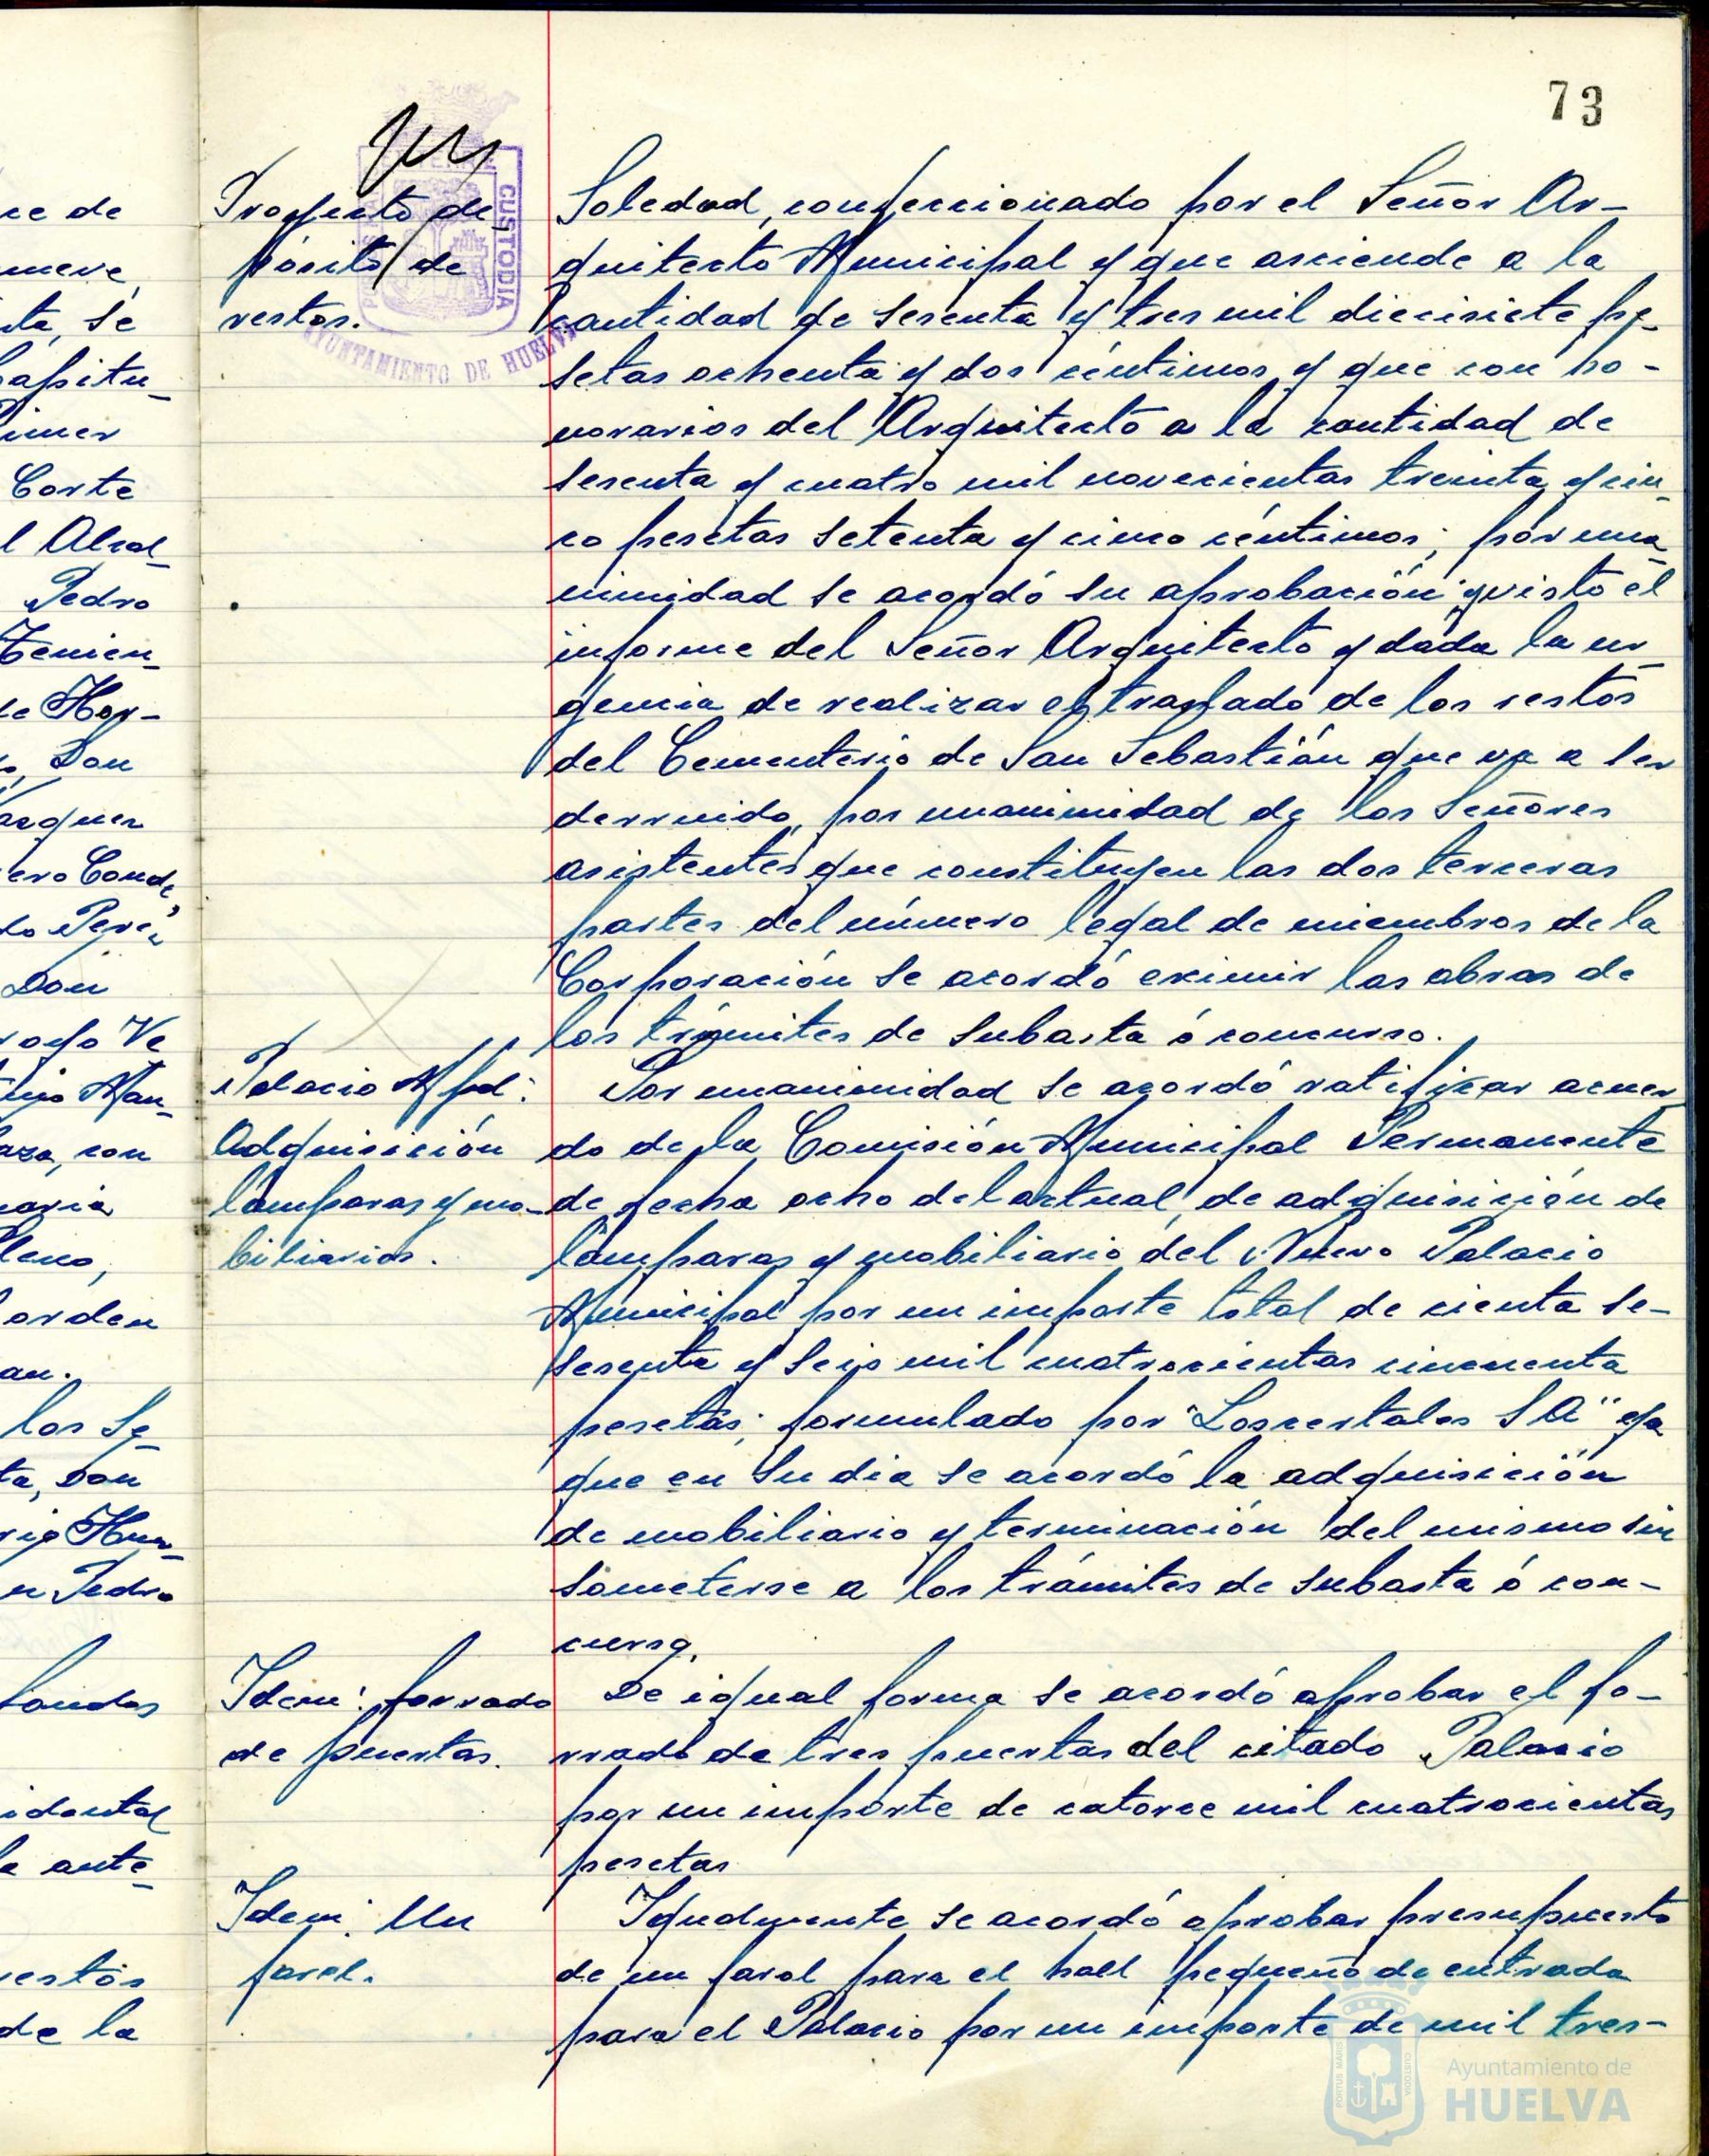 73
Proyecto de
pósito de
restos.
CUSTODIA
AYUNTAMIENTO DE HUELVA
Soledad, confeccionado por el Señor Ar-
quitecto Municipal y que asciende a la
cantidad de sesenta y tres mil diecisiete pe-
setas ochenta y dos céntimos y que con ho-
norarios del Arquitecto a la cantidad de
sesenta y cuatro mil novecientas treinta y cin-
co pesetas setenta y cinco céntimos; por una-
nimidad se acordó su aprobación y visto el
informe del Señor Arquitecto y dada la ur-
gencia de realizar el traslado de los restos
del Cementerio de San Sebastián que va a ser
derruido, por unanimidad de los Señores
asistentes que constituyen las dos terceras
partes del número legal de miembros de la
Corporación se acordó eximir las obras de
los trámites de subasta ó concurso.
Palacio Mpal:
Adquisición
lámparas y mo-
biliarios.
Por unanimidad se acordó ratificar acuer-
do de la Comisión Municipal Permanente
de fecha ocho del actual, de adquisición de
lámparas y mobiliario del Nuevo Palacio
Municipal por un importe total de cienta se-
sesenta y seis mil cuatrocientas cincuenta
pesetas; formulado por "Loscertales S A" ya
que en su dia se acordó la adquisición
de mobiliario y terminación del mismo sin
someterse a los trámites de subasta ó con-
curso.
Idem: forrado
de puertas.
De igual forma se acordó aprobar el fo-
rrado de tres puertas del citado Palacio
por un importe de catorce mil cuatrocientas
pesetas
Idem: Un
farol.
Igualmente se acordó aprobar presupuesto
de un farol para el hall pequeño de entrada
para el Palacio por un importe de mil tres-
ce de
nueve,
ta, se
Capitu-
Primer
Corte
l Alcal-
Pedro
Tenien-
de Har-
s, Don
ero Conde,
Don
royo Ve
Man-
aza, con
naria
Pleno,
orden
an.
los Se-
ta, Don
n Pedro
idental
a ante-
restos
de la
PORTUS MARIS
CUSTODIA
Ayuntamiento de
HUELVA